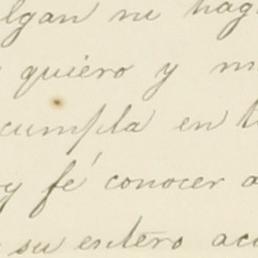 algan ni hag
quiero y m
cumpla en t
y fé conocer a
su entero aco